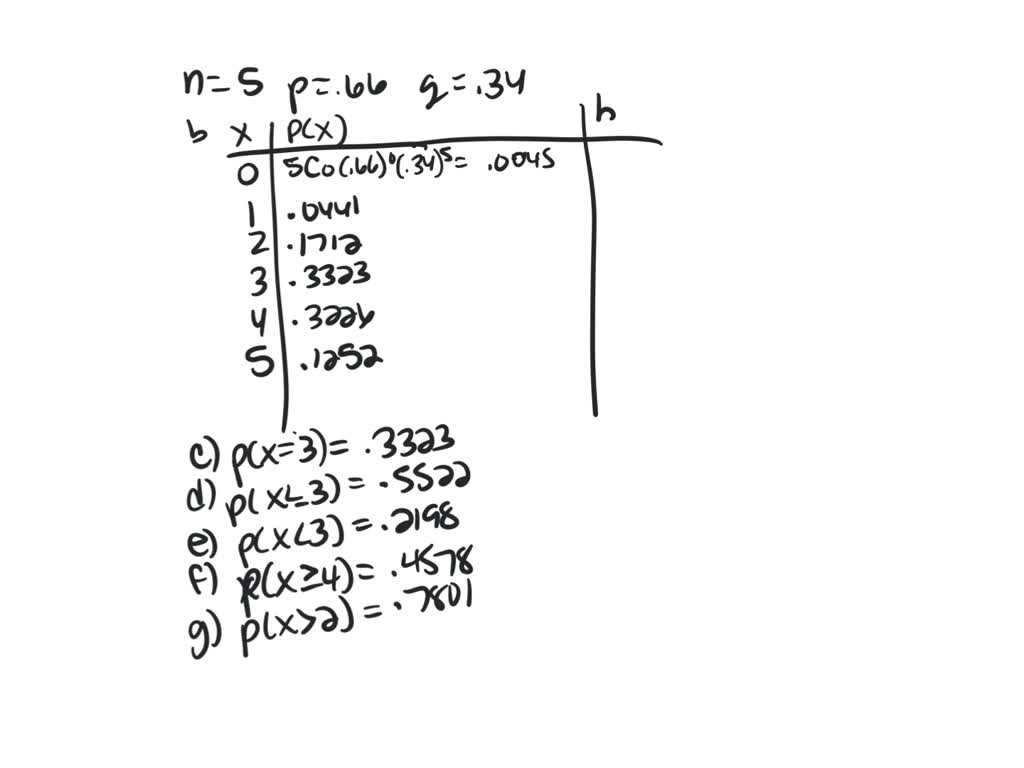 n=5 p=.66 q=.34
b x p(x) h
0 5C0(.66)⁰(.34)⁵= .0045
1 .0441
2 .1712
3 .3323
4 .3226
5 .1252
c) p(x=3)= .3323
d) p(x≤3)= .5522
e) p(x<3)=.2198
f) p(x≥4)= .4578
g) p(x>2)= .7801